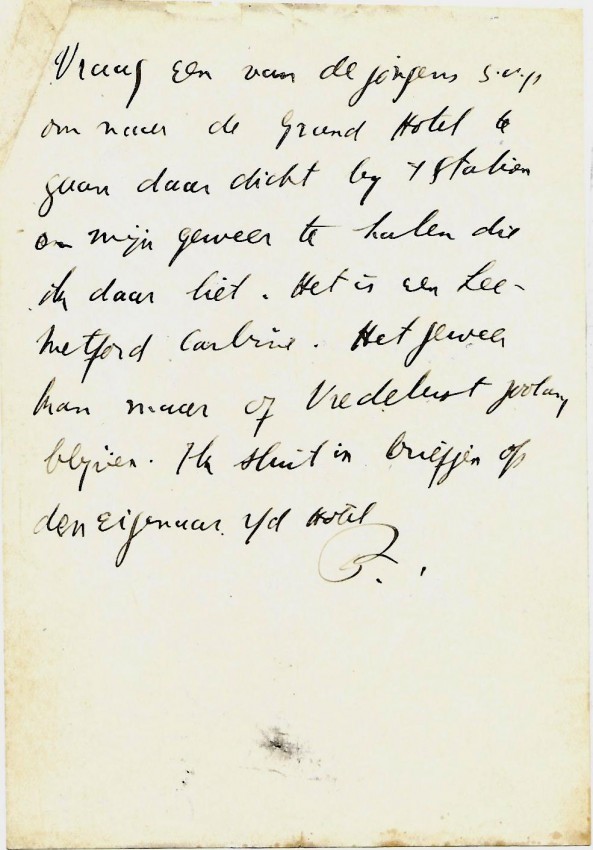 Vraag een van de jongens s.v.p
om naar de Grand Hotel te
gaan daar dicht by 't Station
om mijn geweer te halen die
ik daar liet. Het is een Lee-
Metford Carbine. Het geweer
kan maar op Vredelust zoolang
blijven. Ik sluit in briefjen op
den eigenaar v/d Hotel